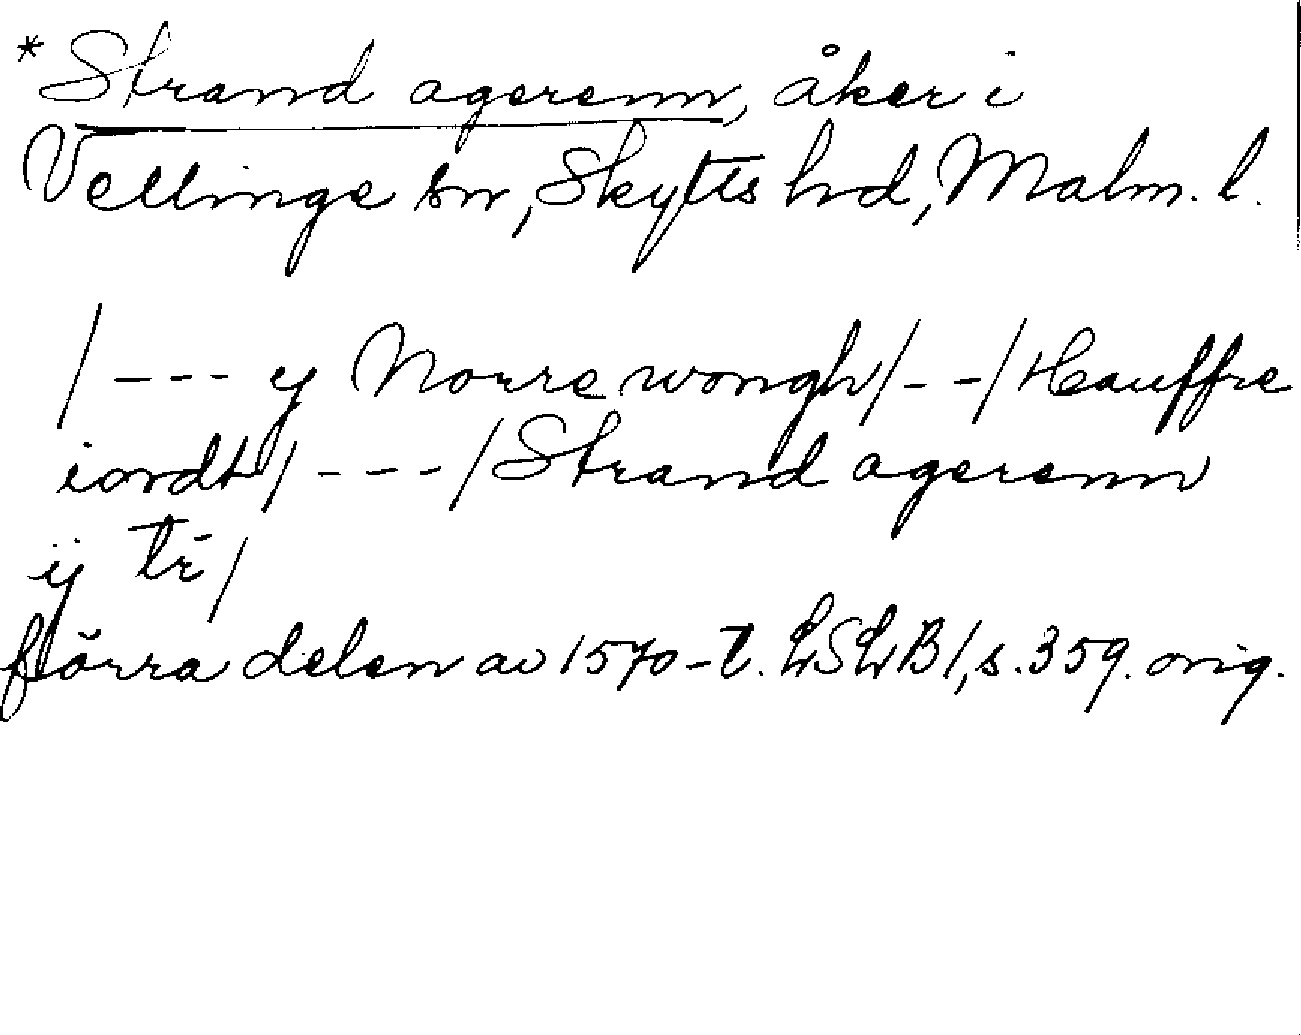 *Strand agerenn, åker i
Vellinge sn, Skytts hd, Malm. l.
/--- y Norre wongh/--/Hauffre
iordt/---/Strand agerenn
ij tr̄/
förra delen av 1570-t. LSLB1, s. 359. orig.